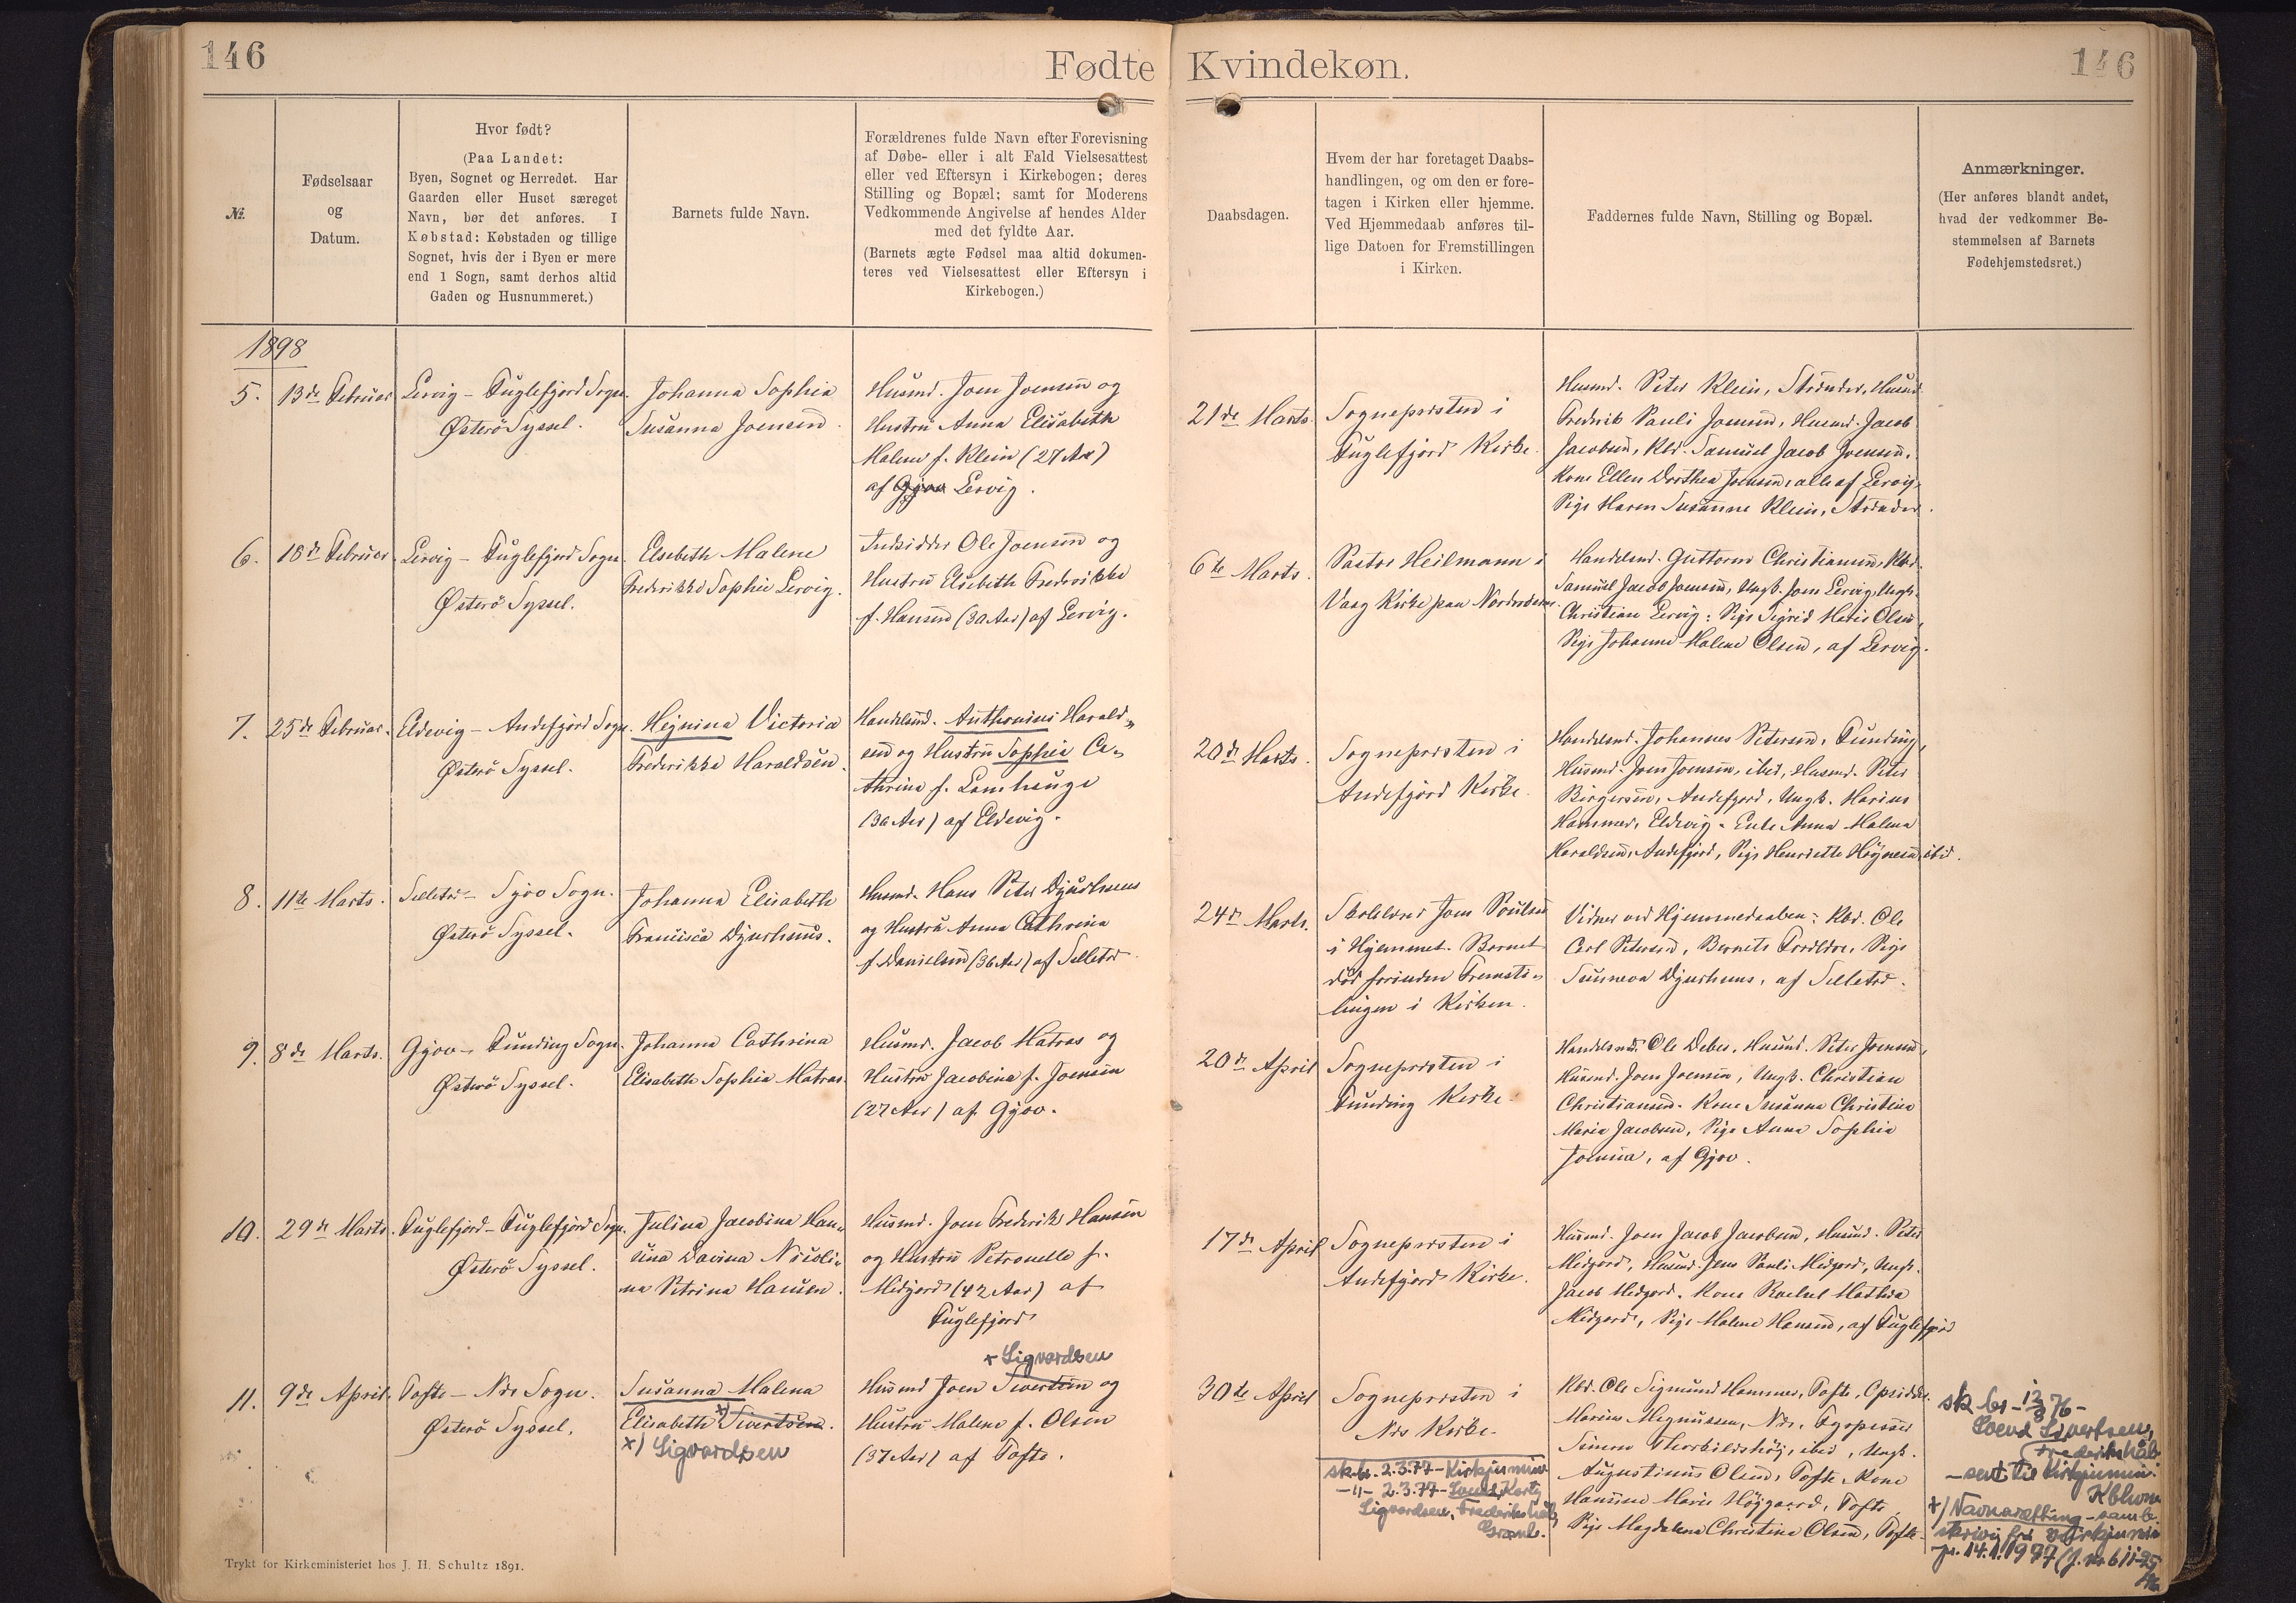 146
Fødte
Kvindekøn.
146
№.
Fødselsaar
og
Datum.
Hvor født?
(Paa Landet:
Byen, Sognet og Herredet. Har
Gaarden eller Huset særeget
Navn, bør det anføres. I
Købstad: Købstaden og tillige
Sognet, hvis der i Byen er mere
end 1 Sogn, samt derhos altid
Gaden og Husnummeret.)
Barnets fulde Navn.
Forældrenes fulde Navn efter Forevisning
af Døbe- eller i alt Fald Vielsesattest
eller ved Eftersyn i Kirkebogen; deres
Stilling og Bopæl; samt for Moderens
Vedkommende Angivelse af hendes Alder
med det fyldte Aar.
(Barnets ægte Fødsel maa altid dokumen-
teres ved Vielsesattest eller Eftersyn i
Kirkebogen.)
Daabsdagen.
Hvem der har foretaget Daabs-
handlingen, og om den er fore-
tagen i Kirken eller hjemme.
Ved Hjemmedaab anføres til-
lige Datoen for Fremstillingen
i Kirken.
Faddernes fulde Navn, Stilling og Bopæl.
Anmærkninger.
(Her anføres blandt andet,
hvad der vedkommer Be-
stemmelsen af Barnets
Fødehjemstedsret.)
1898
5.
13de Februar
Lervig – Fuglefjord Sogn.
Østerö Syssel.
Johanna Sophia
Susanna Joensen
Husmd. Joen Joensen og
Hustru Anna Elisabeth
Malene f. Klein (27 Aar)
af Gjov Lervig.
21de Marts.
Sognepresten i
Fuglefjord Kirke.
Husmd. Peter Klein, Strænder, Husmd
Fredrik Pauli Joensen, Husmd. Jacob
Jacobsen, Kbd. Samuel Jacob Joensen,
Kone Ellen Dorthea Joensen, alle af Lervig,
Pige Maren Susanne Klein, Strænder.
6.
18de Februar
Lervig – Fuglefjord Sogn.
Østerö Syssel.
Elsebeth Malene
Frederikke Sophie Lervig.
Indsidder Ole Joensen og
Hustru Elsebeth Fredrikke
f. Hansen (30 Aar) af Lervig.
6te Marts.
Pastor Heilmann i
Vaag Kirke paa Norderøerne.
Handelsmd. Guttorm Christiansen, Kbd.
Samuel Jacob Joensen, Ungk. Joen Lervig, Ungk.
Christian Lervig; Pige Sigrid Marie Olsen,
Pige Johanne Malene Olsen, af Lervig.
7.
25de Februar.
Eldevig – Andefjord Sogn.
Østerö Syssel.
Hejnina Victoria
Frederikke Haraldsen.
Handelsmd. Anthonius Harald-
sen og Hustru Sophia Ca-
thrina f. Lamhauge
(30 Aar) af Eldevig.
20de Marts.
Sognepresten i
Andefjord Kirke.
Handelsmd. Johannes Petersen, Funding,
Husmd. Joen Joensen, ibid, Husmd. Peter
Birgersen, Andefjord, Ungk. Marius
Hammer, Eldevig. Enke Anna Malena
Haraldsen, Andefjord, Pige Henriette Højnesen, ibid.
8.
11te Marts.
Selletræ – Sjov Sogn.
Østerö Syssel.
Johanna Elisabeth
Francisca Djurhuus.
Husmd. Hans Peter Djurhuus
og Hustru Anna Cathrina
f. Danielsen (36 Aar) af Selletræ.
24de Marts.
Skolelærer Joen Poulsen
i Hjemmet. Barnet
død forinden Fremstil-
lingen i Kirken.
Vidner ved Hjemmedaaben: Kbd. Ole
Carl Petersen, Barnets Forældre, Pige
Sunneva Djurhuus, af Selletræ.
9.
8de Marts.
Gjov – Funding Sogn.
Østerö Syssel.
Johanna Cathrina
Elisabeth Sophia Matras.
Husmd. Jacob Matras og
Hustru Jacobina f. Joensen
(27 Aar) af Gjov.
20de April
Sognepresten i
Funding Kirke.
Handelsmd. Ole Debes, Husmd. Peter Joensen,
Husmd. Joen Joensen, Ungk. Christian
Christiansen. Kone Susanna Christina
Maria Jacobsen, Pige Anna Sophia
Joensen, af Gjov.
10.
29de Marts.
Fuglefjord – Fuglefjord Sogn.
Østerö Syssel.
Julina Jacobina Han-
sina Davina Nicoli-
na Petrina Hansen.
Husmd. Joen Frederik Hansen
og Hustru Petronelle f.
Midjord (42 Aar) af
Fuglefjord
17de April
Sognepresten i
Andefjord Kirke.
Husmd. Joen Jacob Jacobsen, Husmd. Peter
Midjord, Husmd. Jens Pauli Midjord, Ungk.
Jacob Midjord. Kone Rachel Mathea
Midjord, Pige Malene Hansen, af Fuglefjord
11.
9de April.
Tofte – Næs Sogn.
Østerö Syssel.
Susanna Malena
Elisabeth x) Sivertsen.
x) Sigvardsen
x Sigvardsen
Husmd Joen Sivertsen og
Hustru Malene f. Olsen
(37 Aar) af Tofte.
30te April
Sognepresten i
Næs Kirke.
sk.br. 2.3.77 – Kirkjumin.
–"– 2.3.77 – Svend Korty
Sigvardsen, Frederikshåb,
Grønl.
Kbd. Ole Sigmund Hammer, Tofte, Opsidder
Marius Magnussen, Næs,
Simun Thorkildshøj, ibid, Ungk.
Augustinus Olsen, Tofte. Kone
Hansine Marie Højgaard, Tofte,
Pige Magdalena Christina Olsen, Tofte.
sk. br. – 12/8 76 –
Svend Sivertsen,
Frederikshåb
– sent til Kirkjumin.
Kbhvn
x) Navnarætting – samb.
skriv. frá Kirkjumin
pr. 14.1.1977 (J. nr 611-25
Trykt for Kirkeministeriet hos J. H. Schultz 1891.